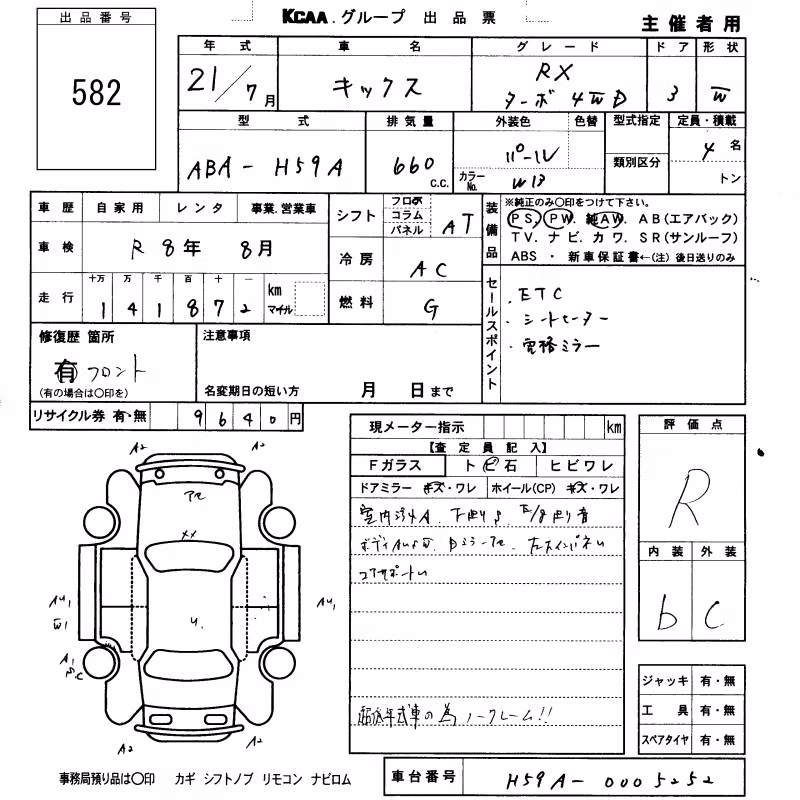 出品番号
582
KCAA.グループ 出品票
主催者用
年式 車名 グレード ドア 形状
21/7月 キックス RX ターボ 4WD 3 W
型式 排気量 外装色 色替 型式指定 定員・積載
ABA-H59A 660 C.C. パール 類別区分 4名
カラーNo. W13 トン
車歴 自家用 レンタ 事業.営業車
車検 R 8年 8月
走行 十万 万 千 百 十 km マイル
1 4 1 8 7 2
シフト フロア コラム パネル AT
冷房 AC
燃料 G
装備品
※純正のみ○印をつけて下さい。
PS. PW. 純AW. AB(エアバック)
TV. ナビ. カワ. SR(サンルーフ)
ABS ・ 新車保証書←(注)後日送りのみ
セールスポイント
・ETC
・シートヒーター
・電格ミラー
修復歴 箇所
有 フロント
(有の場合は○印を)
注意事項
名変期日の短い方 月 日まで
リサイクル券 有・無 9640円
現メーター指示 km
【査定員記入】
Fガラス トビ石 ヒビワレ
ドアミラー キズ・ワレ ホイール(CP) キズ・ワレ
室内汚れA. 下廻りS.
コアサポートU
年式車の為ノークレーム!!
評価点
R
内装 外装
b C
ジャッキ 有・無
工具 有・無
スペアタイヤ 有・無
A2 A2
XX
U.
AU1 AU1
W1
A1
A2 A2
事務局預り品は○印 カギ シフトノブ リモコン ナビロム
車台番号 H59A-0005252